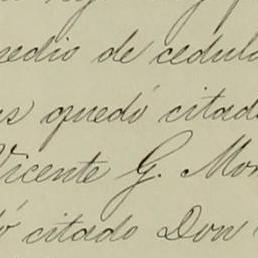 medio de cedula
es quedó citado
Vicente G. Mon
ó citado Don